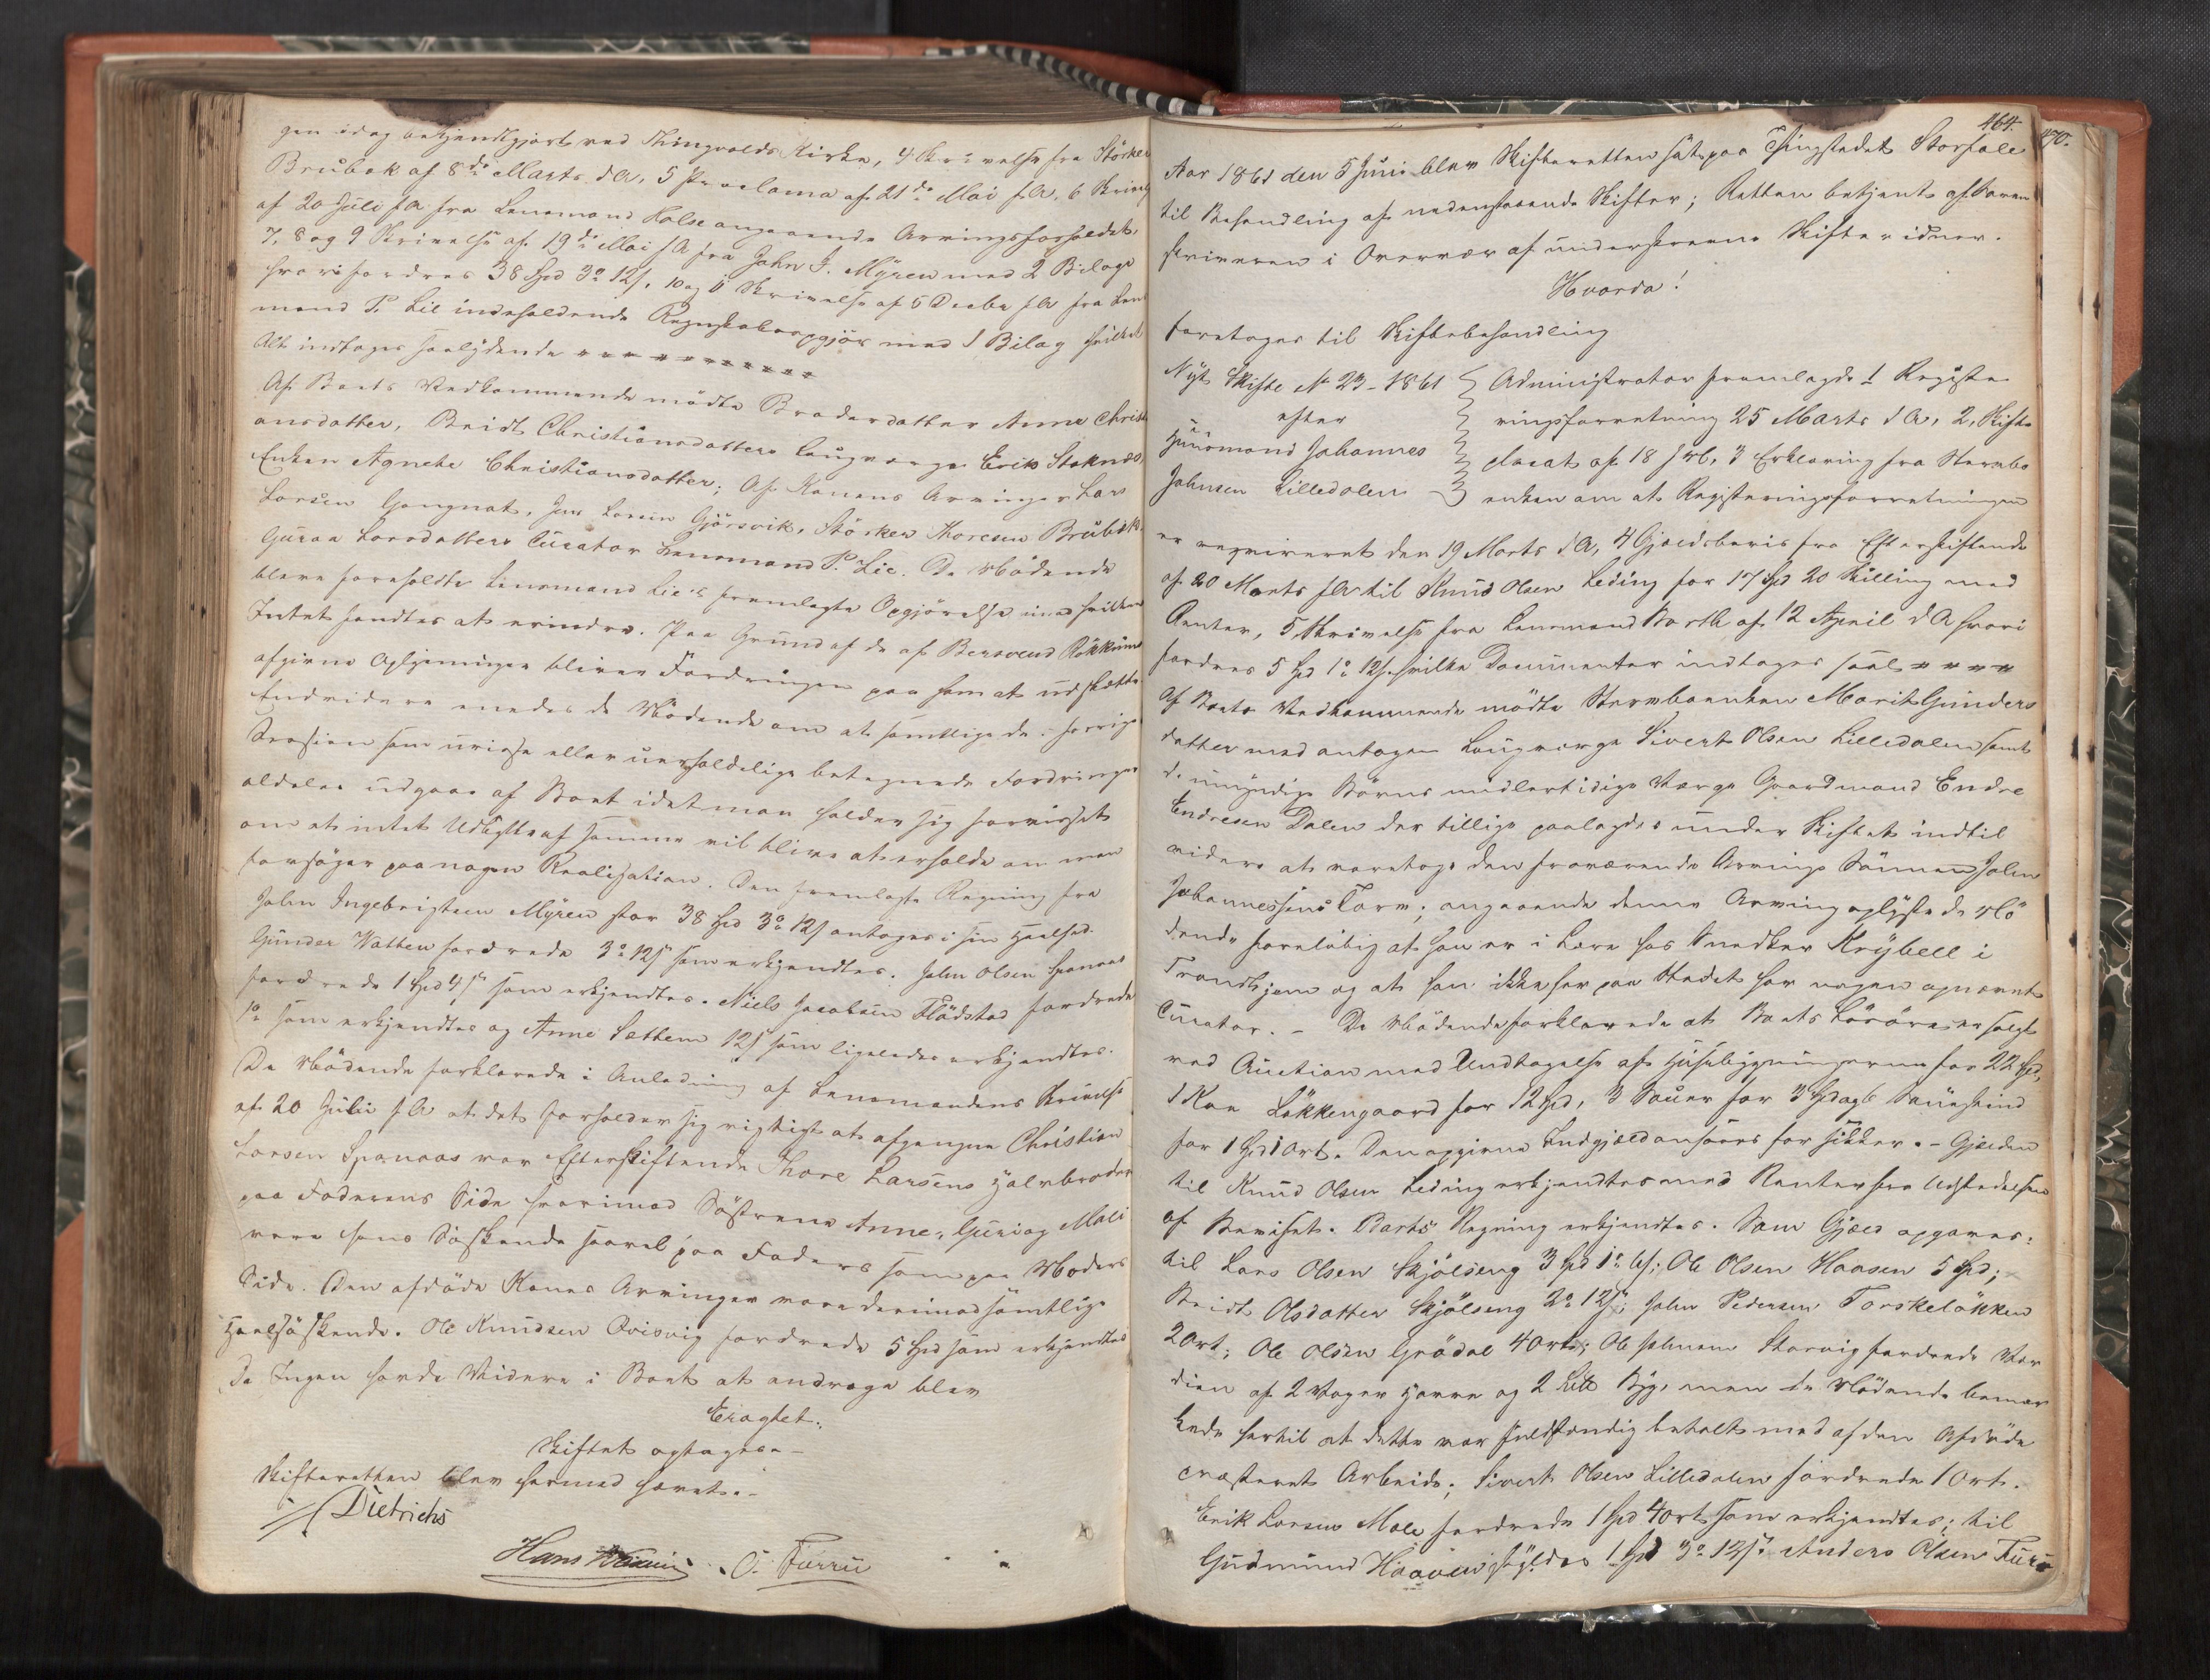 gen idag bekjendtgjort ved Thingvolds Kirke, 4 Skrivelse fra Störker
Brubæk af 8de Marts d A, 5 Proclama af 21de Mai f.A, 6 Skrivelse
af 20 Juli f A fra Lensmand Halse angaaende Arvingsforholdet,
7, 8 og 9 Skrivelse af 19de Mai f A fra John I. Mÿren med 2 Bilage
hvori fordres 38 Spd 3o 12 s, 10 og 11 Skrivelse af 5 Decbr f A fra Lens
mand P. Lie indeholdende Regnskabsopgjör med 1 Bilag hvilket
Alt indtages saalydende
Af Boets Vedkommende mödte Broderdatter Anne Christi
ansdatter, Beret Christiansdatters Laugværge Erik Stoknæs,
Enken Agnethe Christiansdatter; Af Konens Arvinger Lars
Larsen Gangnat, Jens Larsen Gjörsvik, Störker Thoresen Brubæk
Guroe Larsdatters Curator Lensmand P. Lie. De Mödende
bleve foreholdte Lensmand Lie's fremlagte Opgjörelse mod hvilken
Intet fandtes at erindre. Paa Grund af de af Bersvend Rökkum
afgivne Oplysninger bliver Fordringen paa ham at udslette
Endvidere enedes de Mödende om at samtlige de i forrige
Session som uvisse eller uerholdelige betegnede Fordringer
aldeles udgaar af Boet idet man holder sig forvisset
om at intet Udbytte af samme vil blive at erholde om man
forsöger paa nogen Realisation. Den fremlagte Regning fra
John Ingebrigtsen Mÿren stor 38 Spd 3o 12 s antages i sin Heelhed.
Gunder Vatten fordrede 3o 12 s som erkjendtes. John Olsen Spanaas
fordrede 1 Spd 4 s som erkjendtes. Niels Jacobsen Flödstad fordrede
1o som erkjendtes og Anne Sættem 12 s som ligeledes erkjendtes.
De Mödende forklarede i Anledning af Lensmandens Skrivelse
af 20 Juli f A at det forholder sig rigtigt at afgangne Christian
Larsen Spanaas var Efterskiftende Thore Larsens Halvbroder
paa Faderens Side hvorimod Söstrene Anne, Guri og Mali
vare hans Söskende saavel paa Faders som paa Moders
Side. Den afdöde Kones Arvinger vare derimod samtlige
Heelsöskende. Ole Knudsen Qvisvig fordrede 5 Spd som erkjendtes
Da Ingen havde Videre i Boet at andrage blev
Eragtet:
Skiftet optages.-
Skifteretten blev hermed hævet.-
Dietrichs
Hans O. Furru
464.
470.
Aar 1861 den 5 Juni blev Skifteretten sat paa Thingstedet Storfale
til Behandling af nedenstaaende Skifter; Retten betjent af Soren
skriveren i Overvær af underskrevne Skiftevidner.
Hvorda!
foretages til Skiftebehandling
Nyt Skifte No 23-1861
efter
Huusmand Johannes
Johnsen Lilledalen
Administrator fremlagde 1 Registe
ringsforretning 25 Marts d A, 2, Skifte
placat af 18 f M, 3 Erklæring fra Stervbo
enken om at Registeringsforretningen
er reqvireret den 19 Marts d A, 4 Gjældsbevis fra Efterskiftende
af 20 Marts f A til Knud Olsen Leding for 17 Spd 20 Skilling med
Renter, 5 Skrivelse fra Lensmand Barth af 12 April d A hvori
fordres 5 Spd 1o 12 s. hvilke Documenter indtages saal
Af Boets Vedkommende mödte Stervboenken Marit Gunders
datter med antagen Laugværge Sivert Olsen Lilledalen samt
de umyndige Börns midlertidige Værge Gaardmand Endre
Endresen Dalen der tillige paalagdes under Skiftet indtil
videre at varetage den fraværende Arving Sönnen John
Johannessens Tarv; angaaende denne Arving oplyste de Mö
dende foreløbig at han er i Lære hos Snedker Krÿbell i
Trondhjem og at han ikke her paa Stedet har nogen opnævnt
Curator. - De Mödende forklarede at Boets Lösöre er solgt
ved Auction med Undtagelse af Husebygningerne for 22 Spd,
1 Koe Lökkengaard for 12 Spd, 3 Sauer for 3 Spd og 6 Saueskind
for 1 Spd 1 Ort. Den opgivne Indgjæld ansees for sikker. - Gjælden
til Knud Olsen Leding erkjendtes med Renter fra Udstedelsen
af Beviset. Barths Regning erkjendtes. Som Gjæld opgaves:
til Lars Olsen Skjölseng 3 Spd 1o 6 s; Ole Olsen Haasen 5 Spd;
Beret Olsdatter Skjölseng 2o 12 s; John Pedersen Torskelökken
2 Ort; Ole Olsen Grödal 4 Ort; Ole Johnsen Storvig fordrede Vær
dien af 2 Voger Havre og 2 Byg, men de Mödende bemær
kede hertil at dette var fuldstændig betalt med af den Afdöde
præsteret Arbeide; Sivert Olsen Lilledalen fordrede 1 Ort.
Erik Larsen Mæle fordrede 1 Spd 4 Ort som erkjendtes; til
Gudmund Haaven skyldes 1 Spd 3o 12 s. Anders Olsen Furu